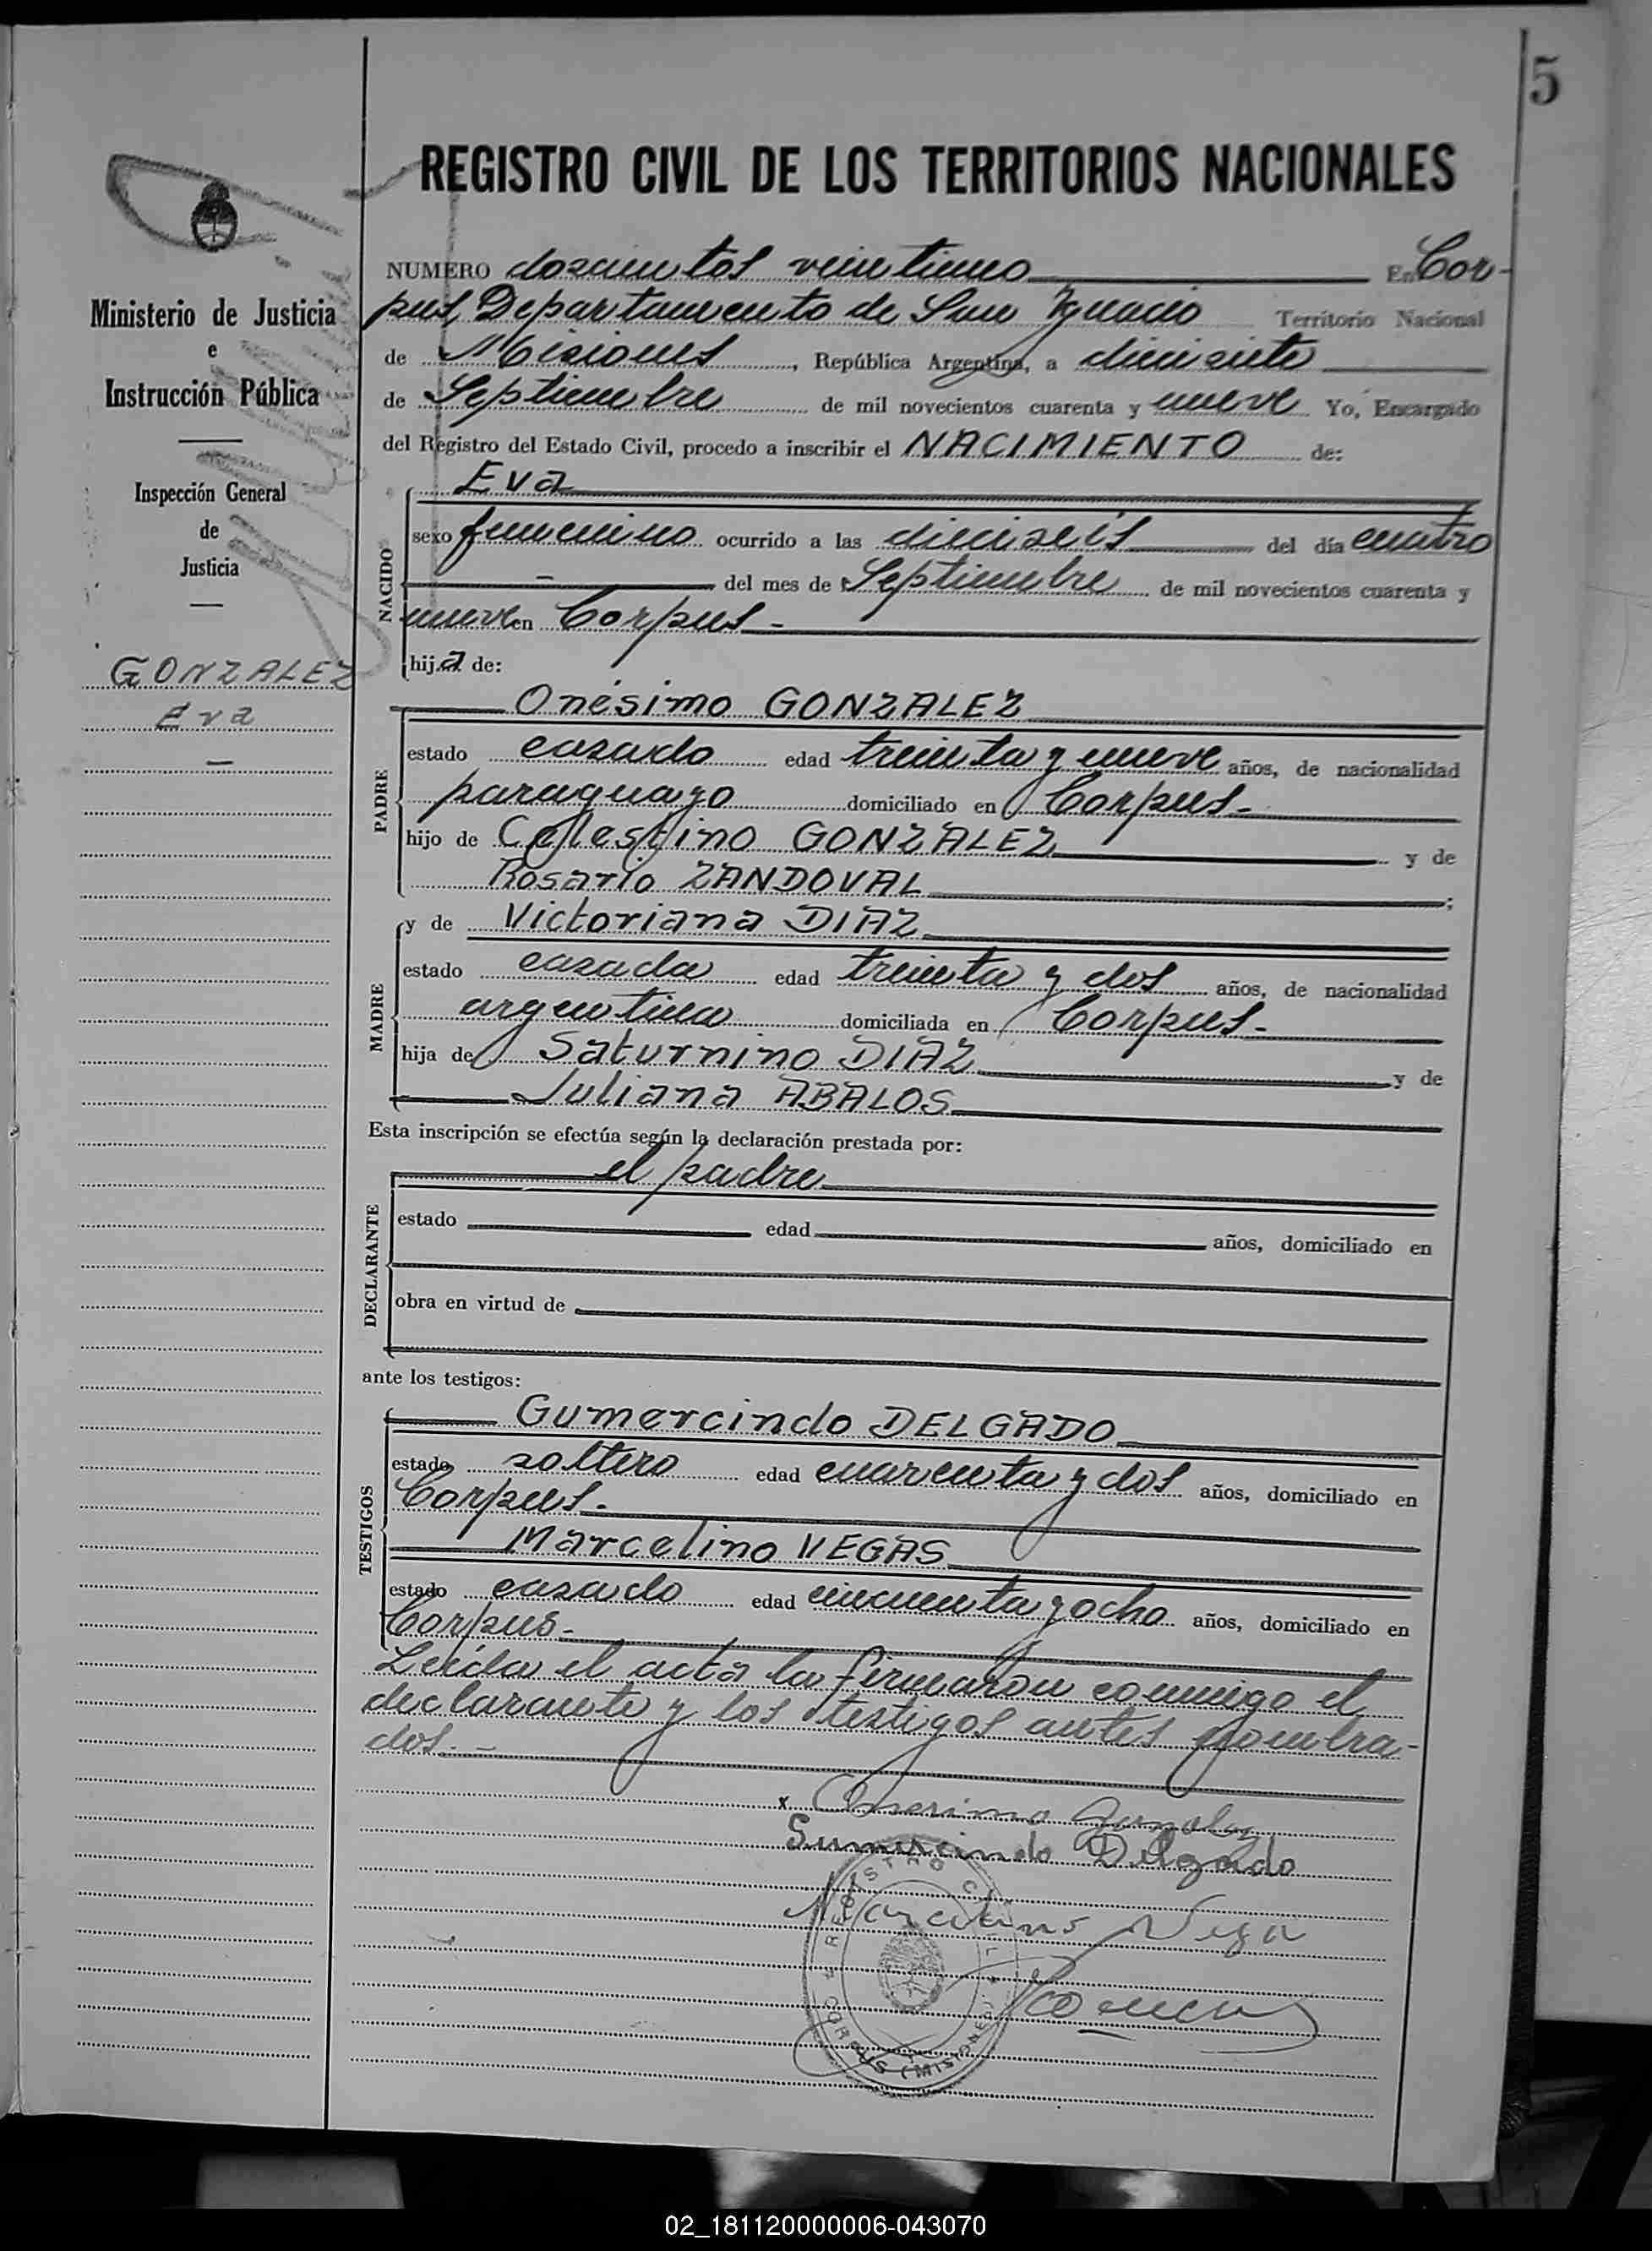 5
REGISTRO CIVIL DE LOS TERRITORIOS NACIONALES
NUMERO doscientos veintiuno En Cor-
pus, Departamento de San Ignacio Territorio Nacional
de Misiones, República Argentina, a diecisiete
de Septiembre de mil novecientos cuarenta y nueve Yo, Encargado
del Registro del Estado Civil, procedo a inscribir el NACIMIENTO de:
Ministerio de Justicia
e
Instrucción Pública
Inspección General
de
Justicia
GONZALEZ
Eva
NACIDO
Eva
sexo femenino ocurrido a las dieciseis del día cuatro
del mes de Septiembre de mil novecientos cuarenta y
nueve en Corpus.-
hija de:
PADRE
Onésimo GONZALEZ
estado casado edad treinta y nueve años, de nacionalidad
paraguayo domiciliado en Corpus.-
hijo de Celestino GONZALEZ y de
Rosario ZANDOVAL;
MADRE
y de Victoriana DIAZ
estado casada edad treinta y dos años, de nacionalidad
argentina domiciliada en Corpus.-
hija de Saturnino DIAZ y de
Juliana ABALOS
Esta inscripción se efectúa según la declaración prestada por:
DECLARANTE
el padre
estado edad años, domiciliado en
obra en virtud de
ante los testigos:
TESTIGOS
Gumercindo DELGADO
estado soltero edad cuarenta y dos años, domiciliado en
Corpus.-
Marcelino VEGAS
estado casado edad cincuenta y ocho años, domiciliado en
Corpus.-
Leída el acta la firmaron conmigo el
declarante y los testigos antes nombra-
dos.-
x Onesimo Gonzalez
Gumercindo Delgado
Marcelino Vega
REGISTRO CIVIL
CORPUS (MISIONES)
02_181120000006-043070